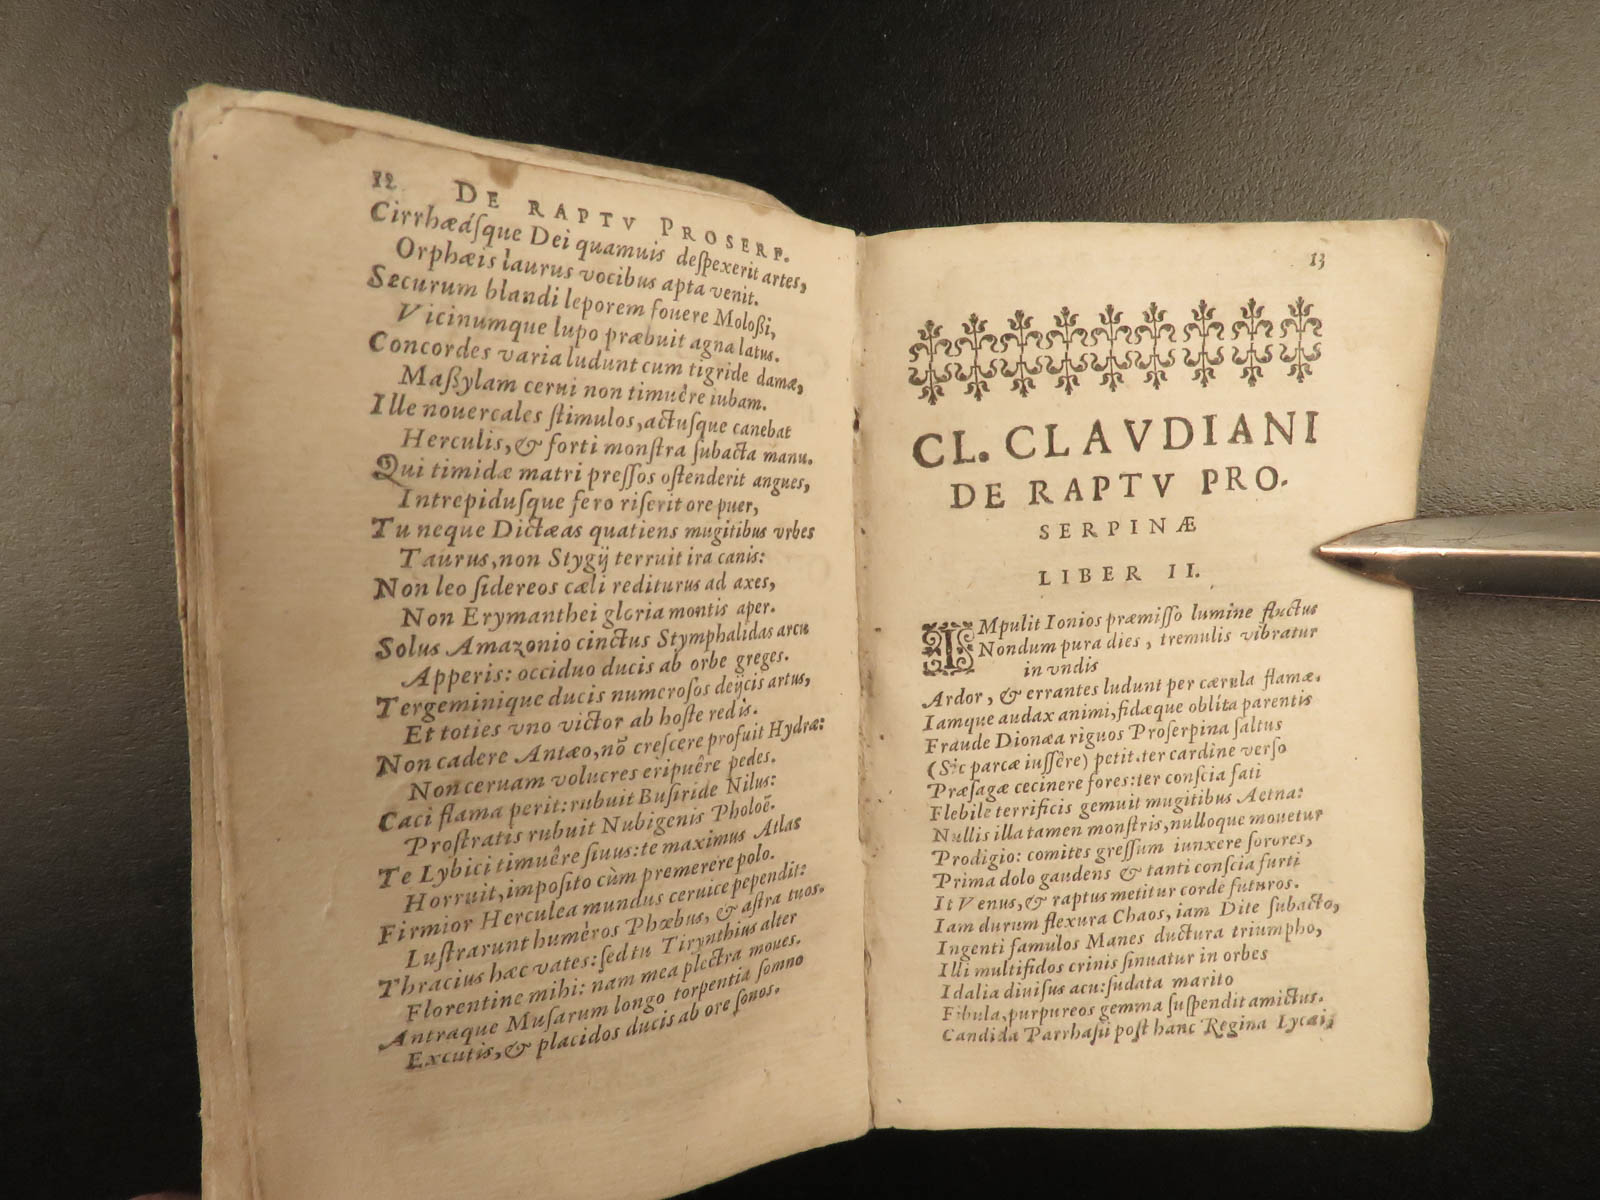 12
DE RAPTV PROSERP.
Cirrhæáſque Dei quamuis deſpexerit artes,
Orphæis laurus vocibus apta venit.
Securum blandi leporem fouere Moloßi,
Vicinumque lupo præbuit agna latus.
Concordes varia ludunt cum tigride damæ,
Maßylam cerui non timuêre iubam.
Ille nouercales ſtimulos, actuſque canebat
Herculis, & forti monſtra ſubacta manu.
Qui timidæ matri preſſos oſtenderit angues,
Intrepiduſque fero riſerit ore puer,
Tu neque Dictæas quatiens mugitibus vrbes
Taurus, non Stygij terruit ira canis:
Non leo ſidereos cæli rediturus ad axes,
Non Erymanthei gloria montis aper.
Solus Amazonio cinctus Stymphalidas arcu
Apperis: occiduo ducis ab orbe greges.
Tergeminique ducis numeroſos deijcis artus,
Et toties vno victor ab hoſte redis.
Non cadere Antæo, nõ creſcere profuit Hydræ:
Non ceruam volucres eripuêre pedes.
Caci flama perit: rubuit Buſiride Nilus:
Proſtratis rubuit Nubigenis Pholoë.
Te Lybici timuêre ſinus: te maximus Atlas
Horruit, impoſito cùm premerere polo.
Firmior Herculea mundus ceruice pependit:
Luſtrarunt humèros Phœbus, & aſtra tuos.
Thracius hæc vates: ſed tu Tirynthius alter
Florentine mihi: nam mea plectra moues.
Antraque Muſarum longo torpentia ſomno
Excutis, & placidos ducis ab ore ſonos.
13
CL. CLAVDIANI
DE RAPTV PRO.
SERPINÆ
LIBER II.
IMpulit Ionios præmiſſo lumine fluctus
Nondum pura dies, tremulis vibratur
in vndis
Ardor, & errantes ludunt per cærula flamæ.
Iamque audax animi, fidæque oblita parentis
Fraude Dionæa riguos Proſerpina ſaltus
(Sic parcæ iuſſêre) petit. ter cardine verſo
Præſagæ cecinere fores: ter conſcia fati
Flebile terrificis gemuit mugitibus Aetna:
Nullis illa tamen monſtris, nulloque mouetur
Prodigio: comites greſſum iunxere ſorores,
Prima dolo gaudens & tanti conſcia furti
It Venus, & raptus metitur corde futuros.
Iam durum flexura Chaos, iam Dite ſubacto,
Ingenti famulos Manes ductura triumpho,
Illi multifidos crinis ſinuatur in orbes
Idalia diuiſus acu: ſudata marito
Fibula, purpureos gemma ſuſpendit amictus.
Candida Parrhaſij poſt hanc Regina Lycæi,